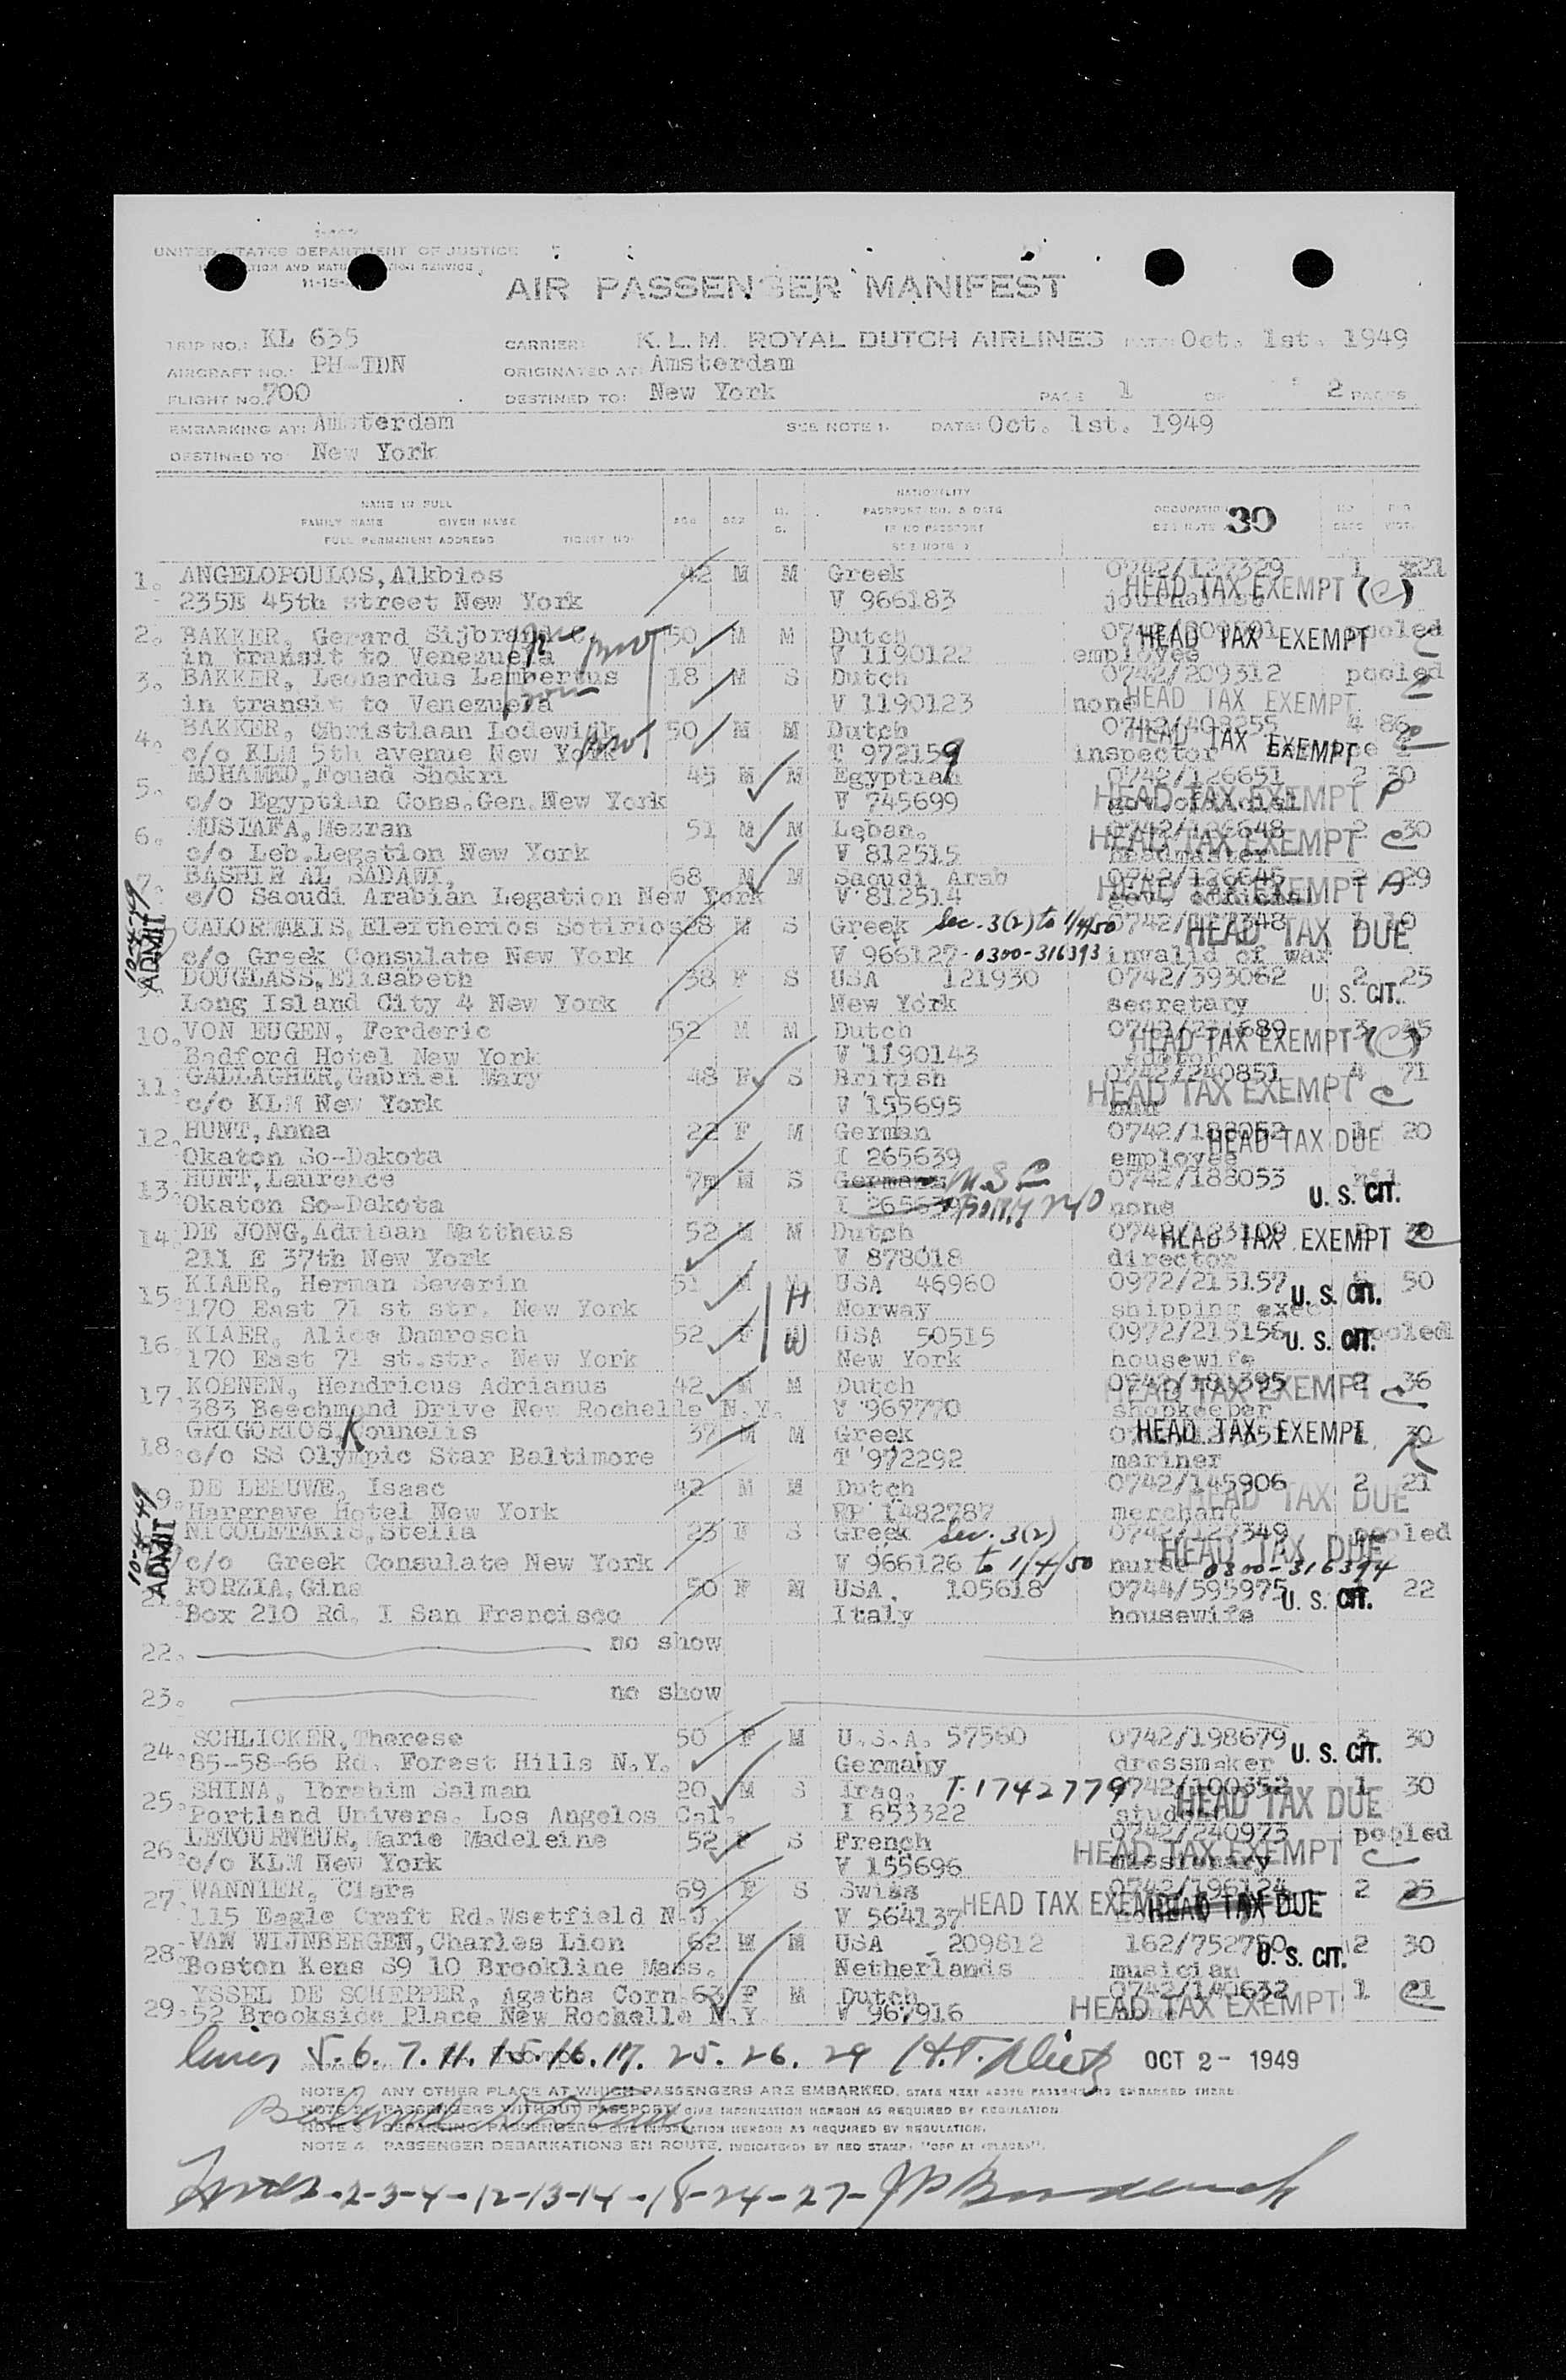 UNITED STATES DEPARTMENT OF JUSTICE
AIR PASSENGER MANIFEST
TRIP NO.: KL 635 CARRIER: K.L.M. ROYAL DUTCH AIRLINES DATE: Oct. 1st. 1949
AIRCRAFT NO.: PH-TDN ORIGINATED AT: Amsterdam
FLIGHT NO. 700 DESTINED TO: New York PAGE 1 OF 2 PAGES
EMBARKING AT: Amsterdam SEE NOTE 1. DATE: Oct. 1st. 1949
DESTINED TO New York
NAME IN FULL NATIONALITY
FAMILY NAME GIVEN NAME AGE SEX M. S. PASSPORT NO. & DATE OCCUPATION 30
FULL PERMANENT ADDRESS TICKET NO. IF NO PASSPORT SEE NOTE
1. ANGELOPOULOS, Alkbios 42 M M Greek 0742/127329 1 21
235E 45th street New York V 966183 journalist HEAD TAX EXEMPT (C)
2. BAKKER, Gerard Sijbrand 50 M M Dutch HEAD TAX EXEMPT pooled
in transit to Venezuela V 1190122 employee
3. BAKKER, Leonardus Lambertus 18 M S Dutch 0742/209312 pooled
in transit to Venezuela V 1190123 none HEAD TAX EXEMPT
4. BAKKER, Christiaan Lodewijk 50 M M Dutch 0742/408255 4 86
c/o KLM 5th avenue New York T 972159 inspector HEAD TAX EXEMPT
5. MOHAMED, Fouad Shokri 45 M M Egyptian 0742/126651 2 30
c/o Egyptian Cons.Gen.New York V 745699 HEAD TAX EXEMPT
6. MUSTAFA, Mezran 51 M M Leban. 0742/126648 2 30
c/o Leb.Legation New York V 812515 headmaster HEAD TAX EXEMPT
7. BASHIR AL SADAWI, 68 M M Saoudi Arab 0742/126645 2 29
c/O Saoudi Arabian Legation New York V 812514 HEAD TAX EXEMPT
10-4-49 ADMIT
CALORMAKIS, Eleftherios Sotirios 28 M S Greek Sec. 3(2) to 1/4/50 0742/127348 3 HEAD TAX DUE
c/o Greek Consulate New York V 966127 - 0300-316393 invalid of war
DOUGLASS, Elisabeth 38 F S USA 121930 0742/393062 2 25
Long Island City 4 New York New York secretary U. S. CIT.
10. VON EUGEN, Ferderic 52 M M Dutch 3
Bedford Hotel New York V 1190143 editor HEAD TAX EXEMPT (C)
11. GALLAGHER, Gabriel Mary 48 F S British 0742/240851 4 71
c/o KLM New York V 155695 nun HEAD TAX EXEMPT
12. HUNT, Anna 22 F M German 0742/188052 1 20
Okaton So-Dakota I 265639 employee HEAD TAX DUE
13. HUNT, Laurence 7m M S German U S C 0742/188053 nil
Okaton So-Dakota I 265639 none U. S. CIT.
14. DE JONG, Adriaan Mattheus 52 M M Dutch 30
211 E 37th New York V 878018 director HEAD TAX EXEMPT
15. KIAER, Herman Severin 51 M M H USA 46960 0972/215157 50
170 East 71 st str. New York Norway shipping exec U. S. CIT.
16. KIAER, Alice Damrosch 52 F W USA 50515 0972/215156 pooled
170 East 71 st.str. New York New York housewife U. S. CIT.
17. KOENEN, Hendricus Adrianus 42 M M Dutch 0742/181395 2 36
383 Beechmond Drive New Rochelle N.Y. V 967770 shopkeeper HEAD TAX EXEMPT
18. GRIGORIOS, Kounelis 37 M M Greek 30
c/o SS Olympic Star Baltimore T 972292 mariner HEAD TAX EXEMPT
19. DE LEEUWE, Isaac 42 M M Dutch 0742/145906 2 21
Hargrave Hotel New York PP 1482787 merchant HEAD TAX DUE
10-4-49 ADMIT
NICOLETAKIS, Stella 23 F S Greek Sec. 3(2) 0742/127349 pooled
c/o Greek Consulate New York V 966126 to 1/4/50 nurse HEAD TAX DUE 0300-316394
21. PORZIA, Gina 50 F M USA. 105618 0744/595975 22
Box 210 Rd. I San Francisco Italy housewife U. S. CIT.
22. no show
23. no show
24. SCHLICKER, Therese 50 F M U.S.A. 57560 0742/198679 3 30
85-58-66 Rd. Forest Hills N.Y. Germany dressmaker U. S. CIT.
25. SHINA, Ibrahim Salman 20 M S Iraq. T-1742779 0742/100352 1 30
Portland Univers. Los Angelos Cal. I 653322 student HEAD TAX DUE
26. LETOURNEUR, Marie Madeleine 52 F S French 0742/240973 pooled
c/o KLM New York V 155696 missionary HEAD TAX EXEMPT
27. WANNIER, Clara 69 F S Swiss 0742/196124 2 25
115 Eagle Craft Rd.Wsetfield N.J. V 564137 HEAD TAX EXEMPT HEAD TAX DUE
28. VAN WIJNBERGEN, Charles Lion 62 M M USA 209812 162/752750 2 30
Boston Kens 89 10 Brookline Mass. Netherlands musician U. S. CIT.
29. YSSEL DE SCHEPPER, Agatha Corn. 63 F M Dutch 0742/140632 1 21
52 Brookside Place New Rochelle N.Y. V 967916 HEAD TAX EXEMPT
lines 5. 6. 7. 11. 15. 16. 17. 25. 26. 29 OCT 2 - 1949
NOTE 1. ANY OTHER PLACE AT WHICH PASSENGERS ARE EMBARKED, STATE NEXT ABOVE PASSENGERS EMBARKED THERE
NOTE 2. PASSENGERS WITHOUT PASSPORT, GIVE INFORMATION HEREON AS REQUIRED BY REGULATION.
NOTE 3. DEPARTING PASSENGERS, GIVE INFORMATION HEREON AS REQUIRED BY REGULATION.
NOTE 4. PASSENGER DEBARKATIONS EN ROUTE, INDICATED BY RED STAMP: "OFF AT (PLACE)".
Lines -2-3-4-12-13-14-18-24-27-